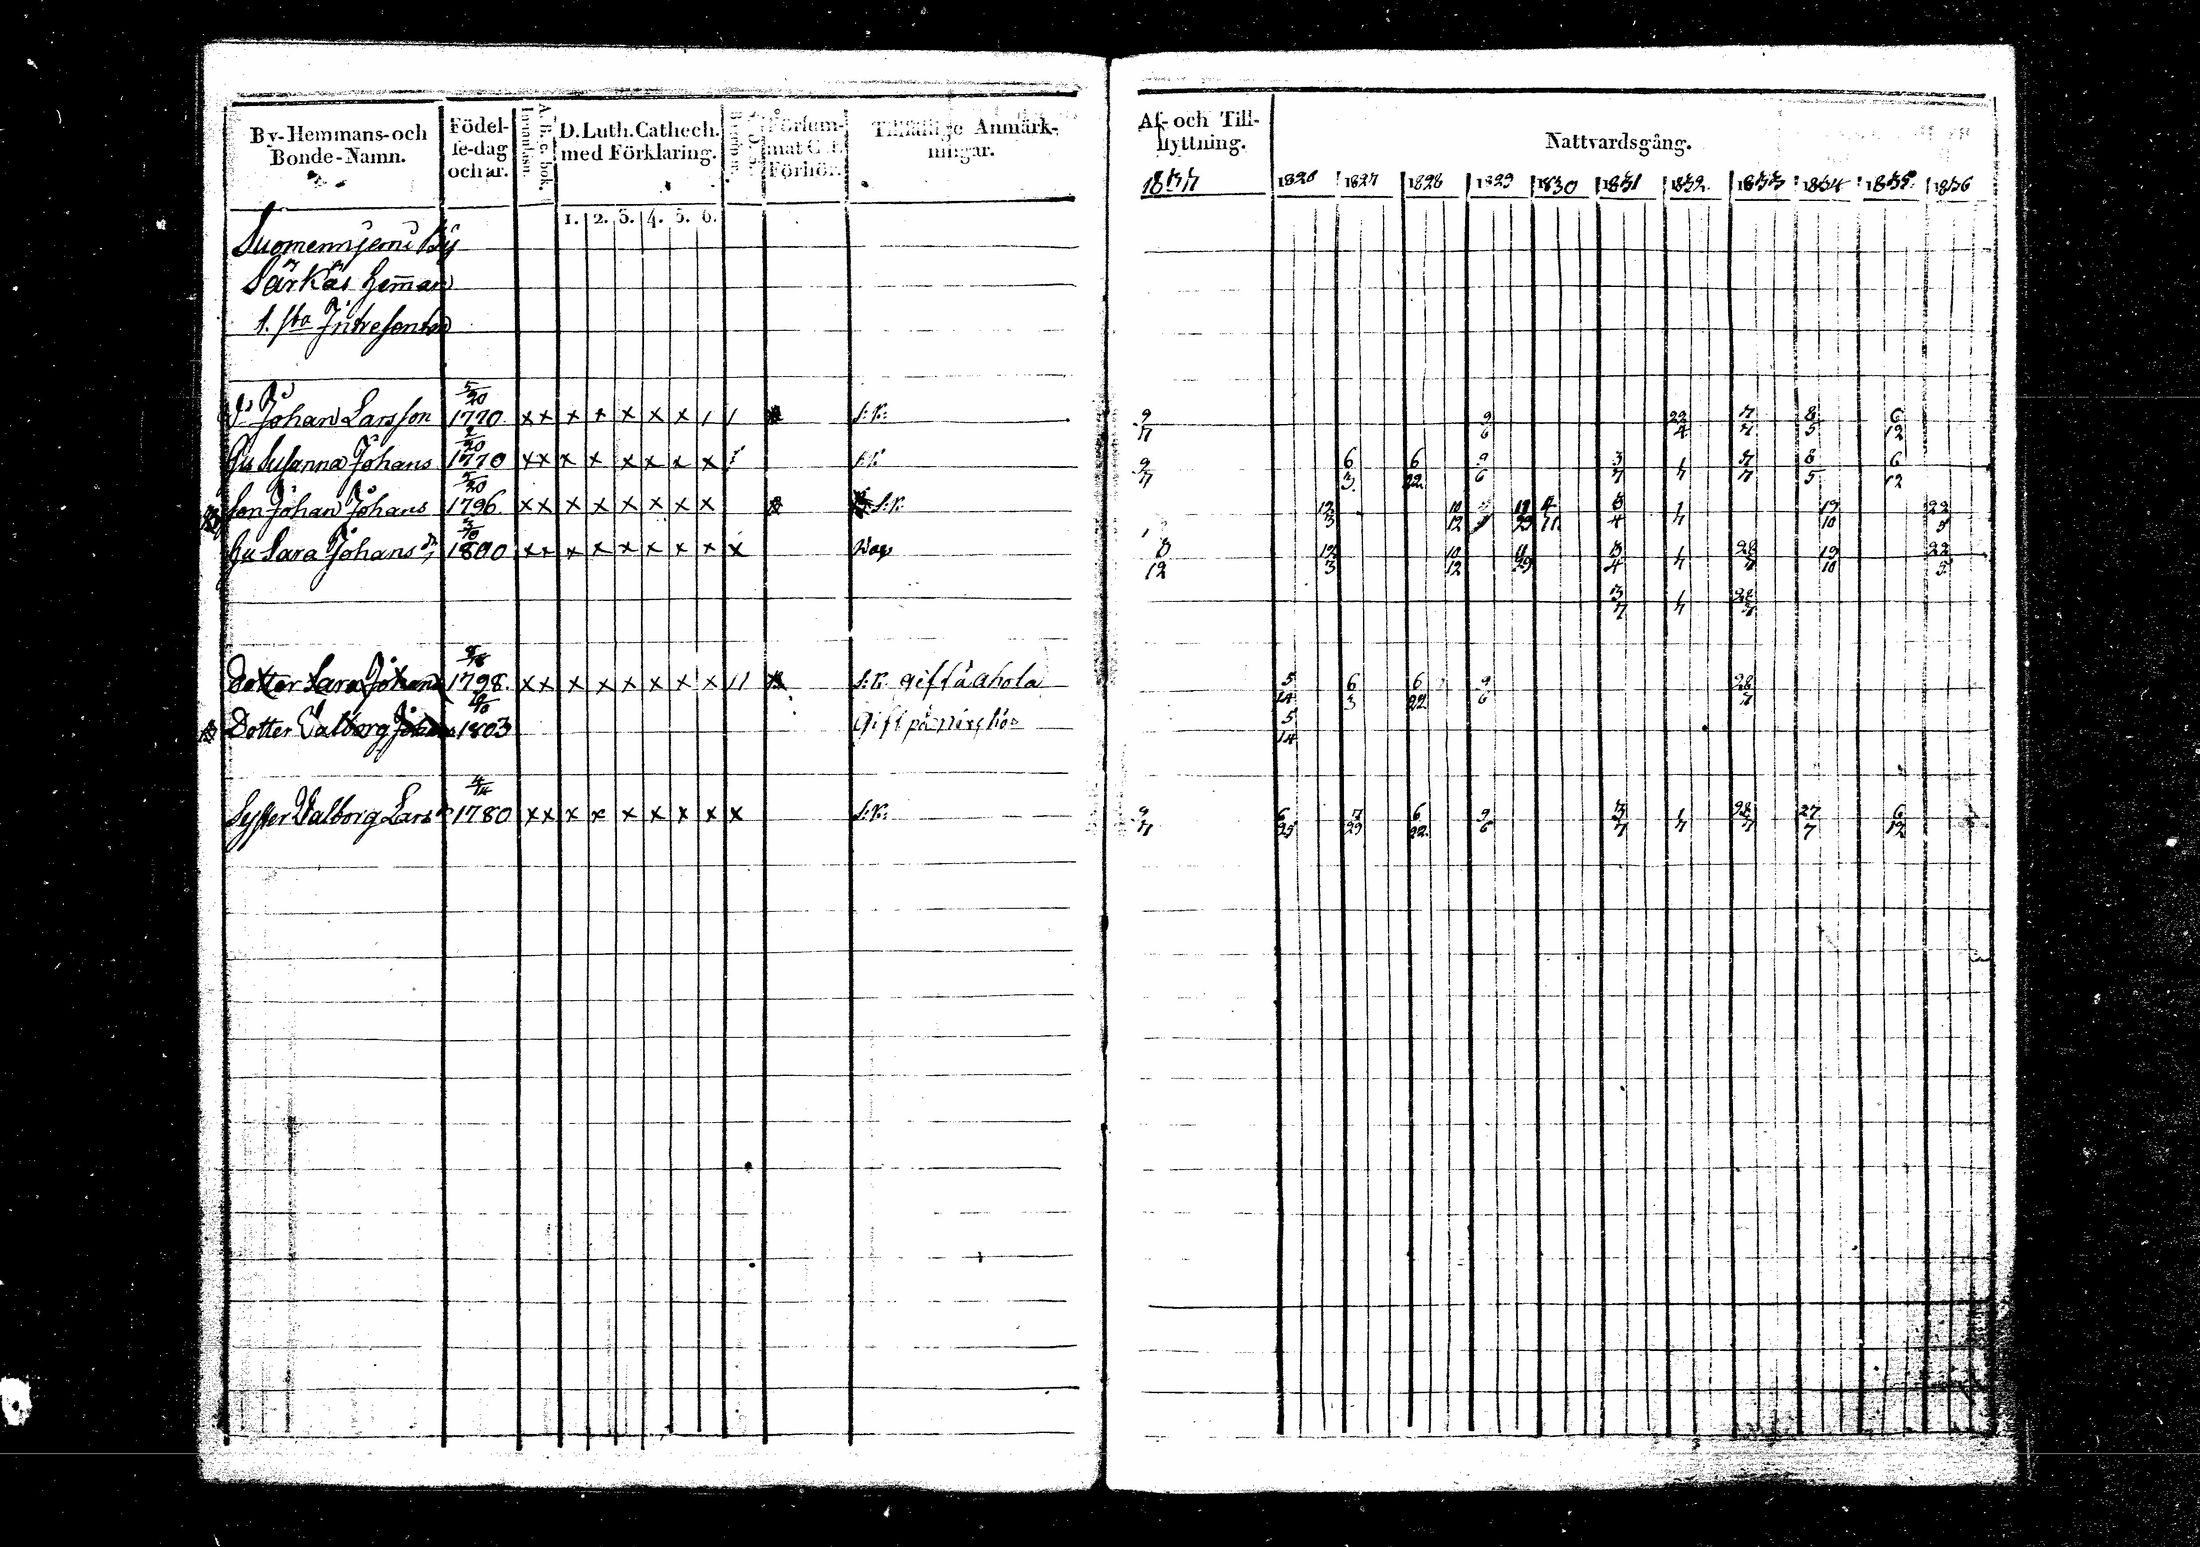 By-Hemmans-och Bonde-Namn.
Födel-se-dag och år.
A. b. c. bok.
Innanläsn.
D. Luth. Cathech. med Förklaring.
1. 2. 3. 4. 5. 6.
Försum-mat C. F. Förhör.
Tillfällige Anmärk-ningar.
Suomenniemi By
Särkäs Heman
1. sta Intresenten
Johan Larsson 5/20 1770 x x x x x x x / / S:K:
Hu Susanna Johans 2/20 1770 x x x x x x x x S:K
Son Johan Johans 5/20 1796 x x x x x x x x S:K
Hu Sara Johans dr 3/10 1800 x x x x x x x x x
Dotter Sara Johans 1798 x x x x x x x x // S:K: gift å Ahola
Dotter Valborg Johans 1803 Gift på
Syster Valborg Lars 4/14 1780 x x x x x x x x x S:K:
Af- och Till-flyttning.
1837
Nattvardsgång.
1826 1827 1828 1829 1830 1831 1832 1833 1834 1835 1836
9/7 9/6 22/4 7/7 8/5 6/12
9/7 6/3 6/22 9/6 3/7 1/7 7/7 8/5 6/12
12/3 10/12 3/4 1/7 19/10 22/5
3/12 12/3 10/12 3/4 1/7 28/7 19/10 22/5
3/7 1/7 28/7
5/14 6/3 6/22 9/6 28/7
5/14
9/7 6/25 7/29 6/22 9/6 3/7 1/7 28/7 27/7 6/12